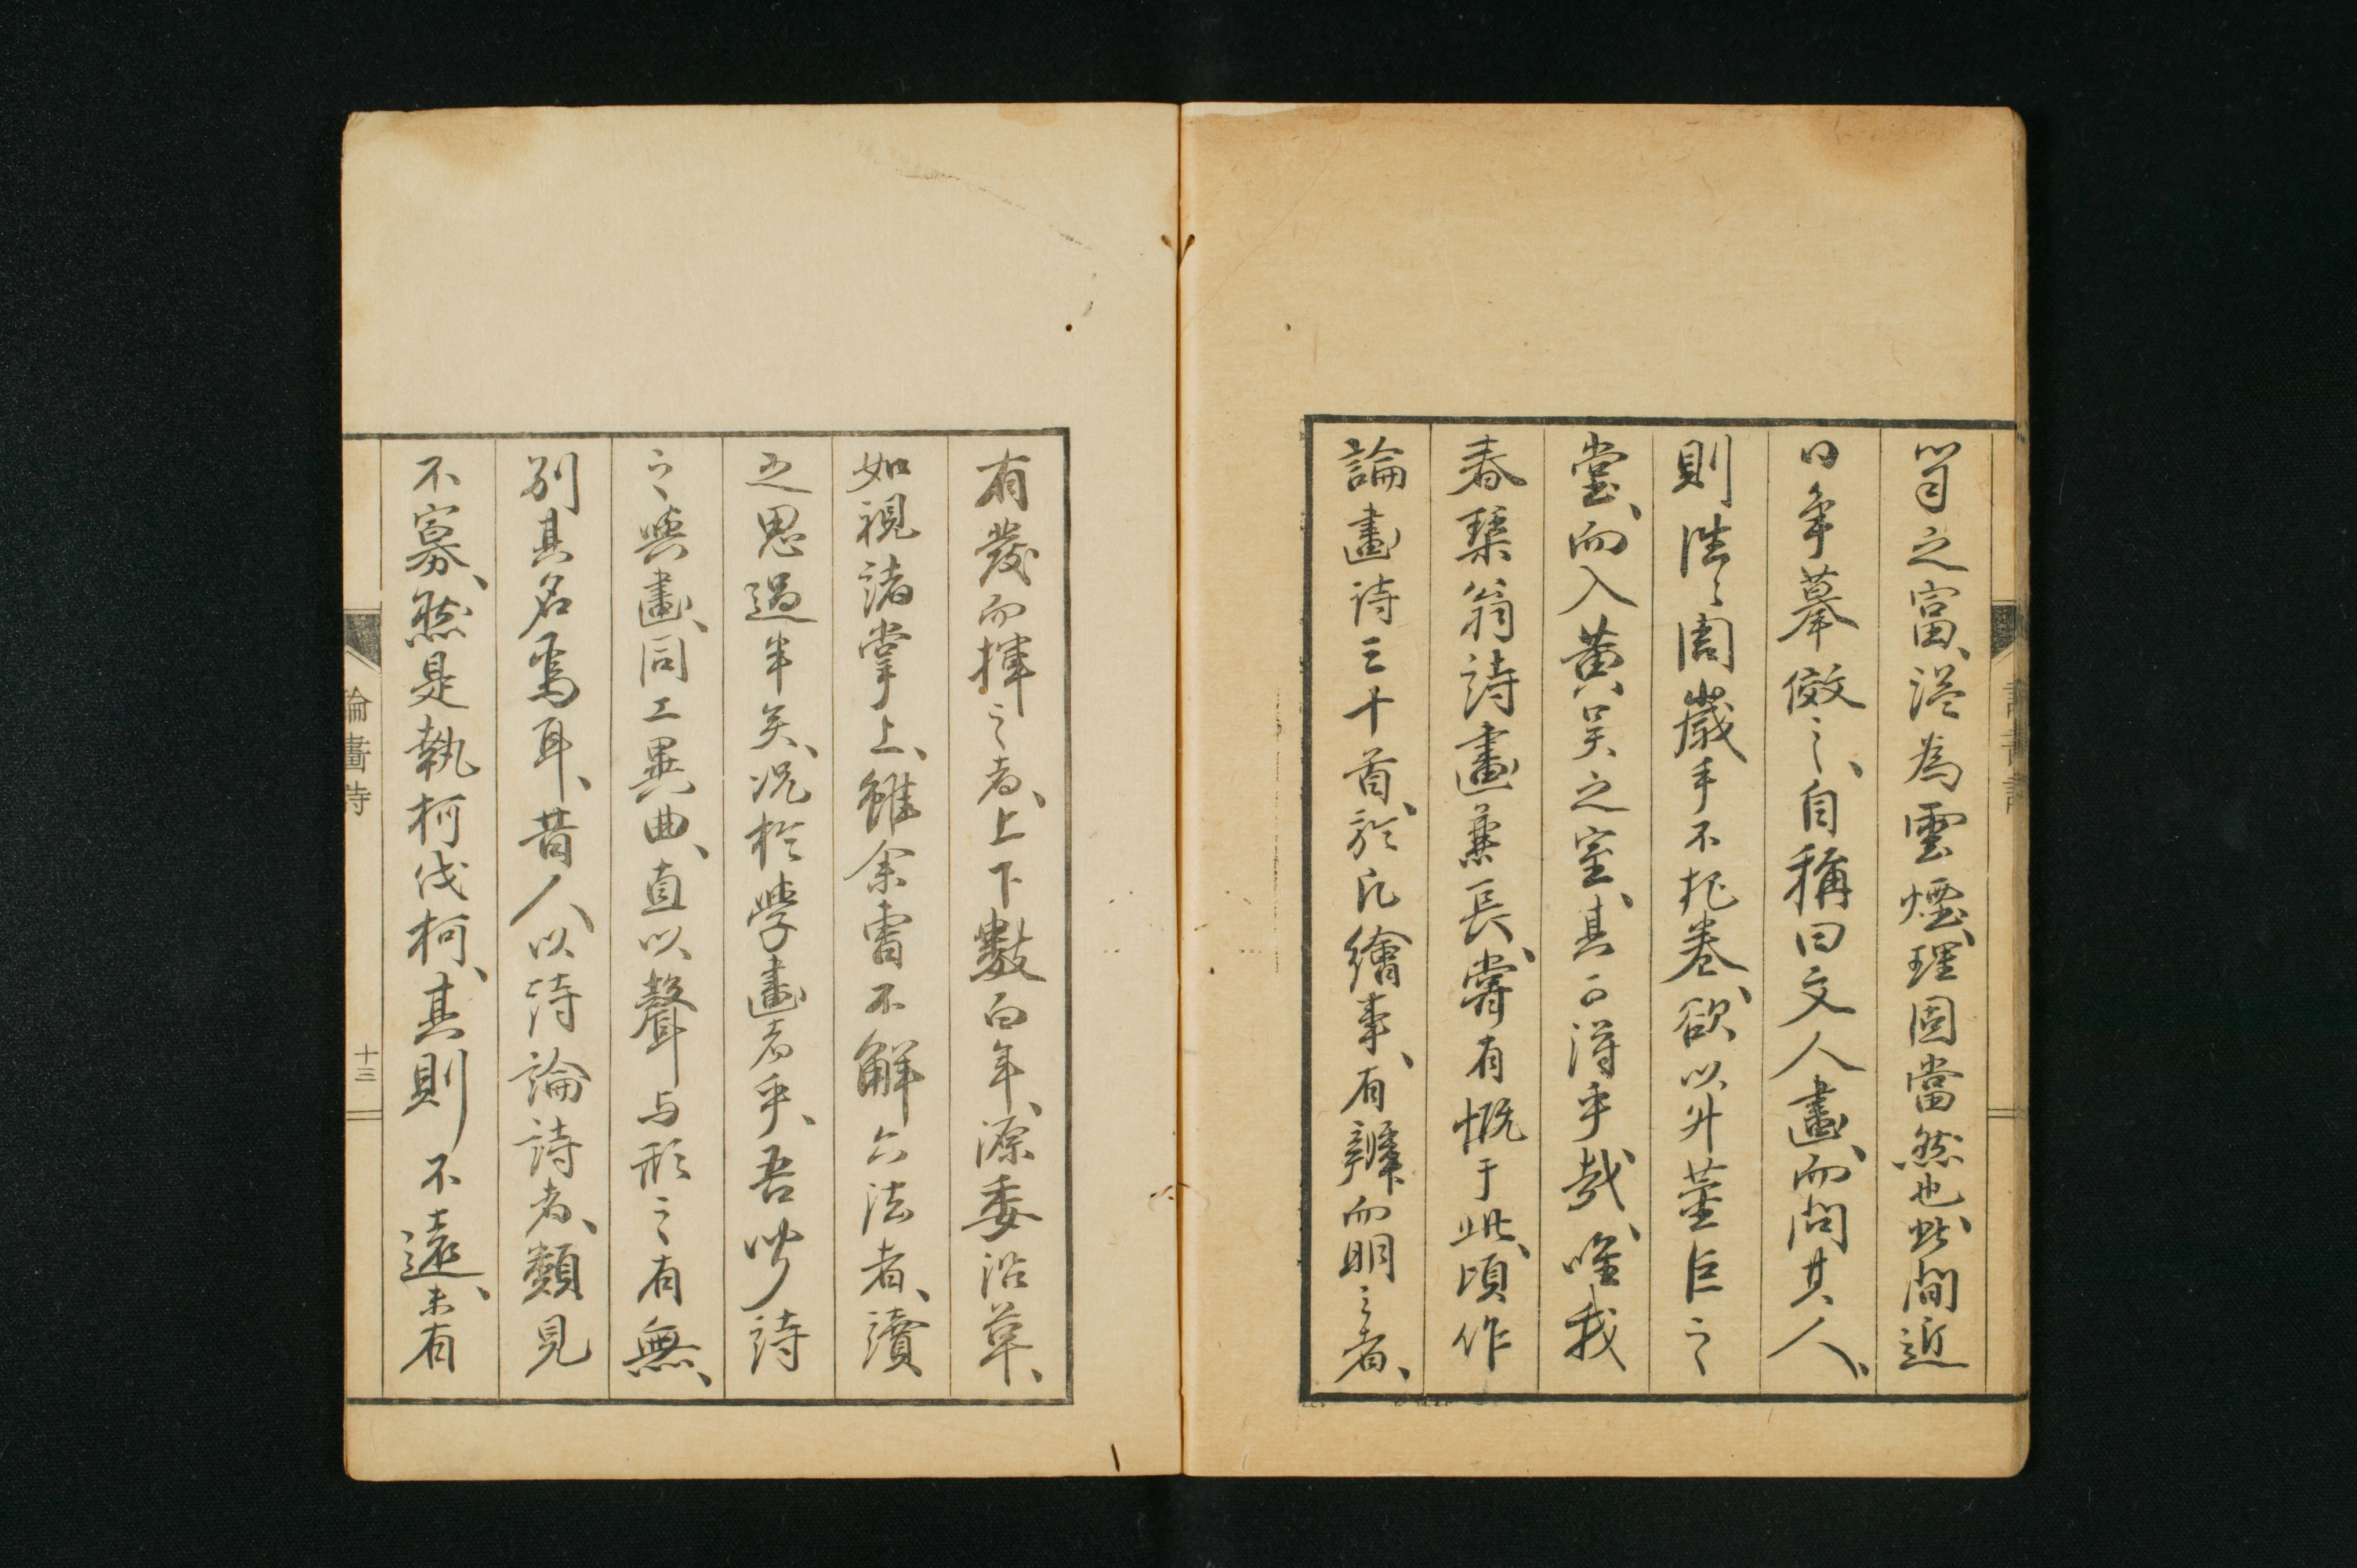 笥之富、溢為雲煙、理固當然也、此間近
日爭摹倣之、自稱曰文人畫、而問其人、
則往々周歲手不把卷、欲以升董巨之
堂、而入黃吳之室、其可得乎哉、唯我
春琴翁詩畫兼長、嘗有慨于此、頃作
論畫詩三十首、於凡繪事、有辨而明之者、
有發而揮之者、上下數百年、源委沿革、
如視諸掌上、雖余曹不解六法者、讀
之思過半矣、況於學畫者乎、吾謂詩
之與畫、同工異曲、直以聲与形之有無、
別其名焉耳、昔人以詩論詩者、類見
不寡、然是執柯伐柯、其則不遠、未有
論畫詩
十三